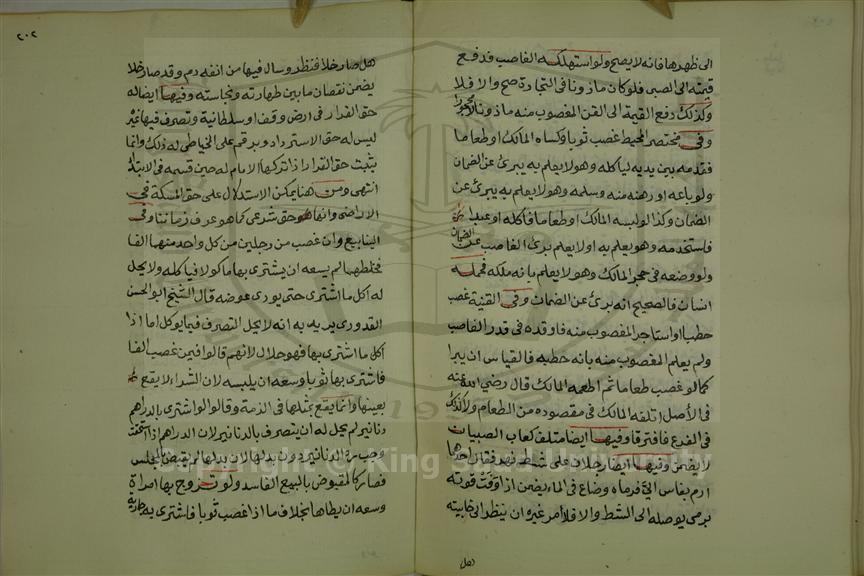 الى ظهرها فانه لا يصح ولو استهلكه الغاصب فدفع
قيمته الى الصبى فلو كان ماذونا فى التجارة صح والا فلا
وكذلك دفع القيمة الى القن المغصوب منه ماذونا
وفى مختصر المحيط غصب ثوبا وكساه المالك او طعاما
فقدمه بين يديه لياكله وهو لا يعلم به يبرئ عن الضمان
ولو باعه او رهنه منه وسلمه وهو لا يعلم به يبرئ عن
الضمان وكذا لو لبسه المالك او طعاما فأكله او عبدا
فاستخدمه وهو يعلم به او لا يعلم برئ الغاصب عن الضمان
ولو وضعه فى حجر المالك وهو لا يعلم بانه ملكه فحمله
انسان فالصحيح انه برئ عن الضمان وفى القنية غصب
حطبا او استاجر المغصوب منه فاوقده فى قدر الغاصب
ولم يعلم المغصوب منه بانه حطبه فالقياس ان يبرا
كما لو غصب طعاما ثم اطعمه المالك قال رضى الله عنه
فى الأصل اتلفه المالك فى مقصوده من الطعام ولا كذلك
فى الفرع فافترقا وفيها ايضا متلف كعاب الصبيان
لا يضمن وفيها ايضا رجلان على شط نهر فقال احدهما
ارم بفاس الىّ فرماه وضاع فى الماء يضمن ان وقفت قوته
برمى يوصله الى الشط والا فلا امر غيره ان ينظر الى خابيته
هل
٢٠٢
هل صار خلا فنظر وسال فيها من انفه دم وقد صار خلا
يضمن نقصان ما بين طهارته ونجاسته وفيها ايضا له
حق القرار فى ارض وقف او سلطانية وتصرف فيها غيره
ليس له حق الاسترداد وبرقى على الخياطى له ذلك وانما
يثبت حق القرار اذا تركها الامام له حين قسمه فى الابتداء
انتهى ومن هنا يمكن الاستدلال على حق المسكة فى
الاراضى وانها هو حق شرعى كما هو عرف زماننا وفى
الينابيع وان غصب من رجلين من كل واحد منهما الفا
فخلطهما لم يسعه ان يشترى بها ماكولا فياكله ولا يحل
له اكل ما اشترى حتى يودى عوضه قال الشيخ ابو الحسن
القدورى يريد به انه لا يحل التصرف فيما يوكل اما اذا
اكل ما اشترى بها فهو حلال لانهم قالوا فيمن غصب الفا
فاشترى بها ثوبا وسعه ان يلبسه لان الشراء لا يقع
بعينها وانما يقع بمثلها فى الذمة وقالوا لو اشترى بالدراهم
دنانير لم يحل له ان يتصرف بالدنانير لان الدراهم اذا استحقت
وجب رد الدنانير دون بدلها لان بدلها لم يقبض بالمجلس
فصار كالمقبوض بالبيع الفاسد ولو تزوج بها امراة
وسعه ان يطاها بخلاف ما اذا غصب ثوبا فاشترى به جارية
Copyright © King Saud University
1957